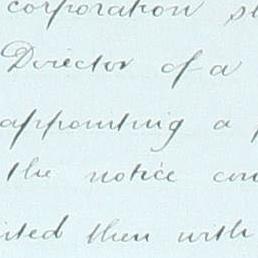 corporation
Director of a
appointing a
the notice
then with